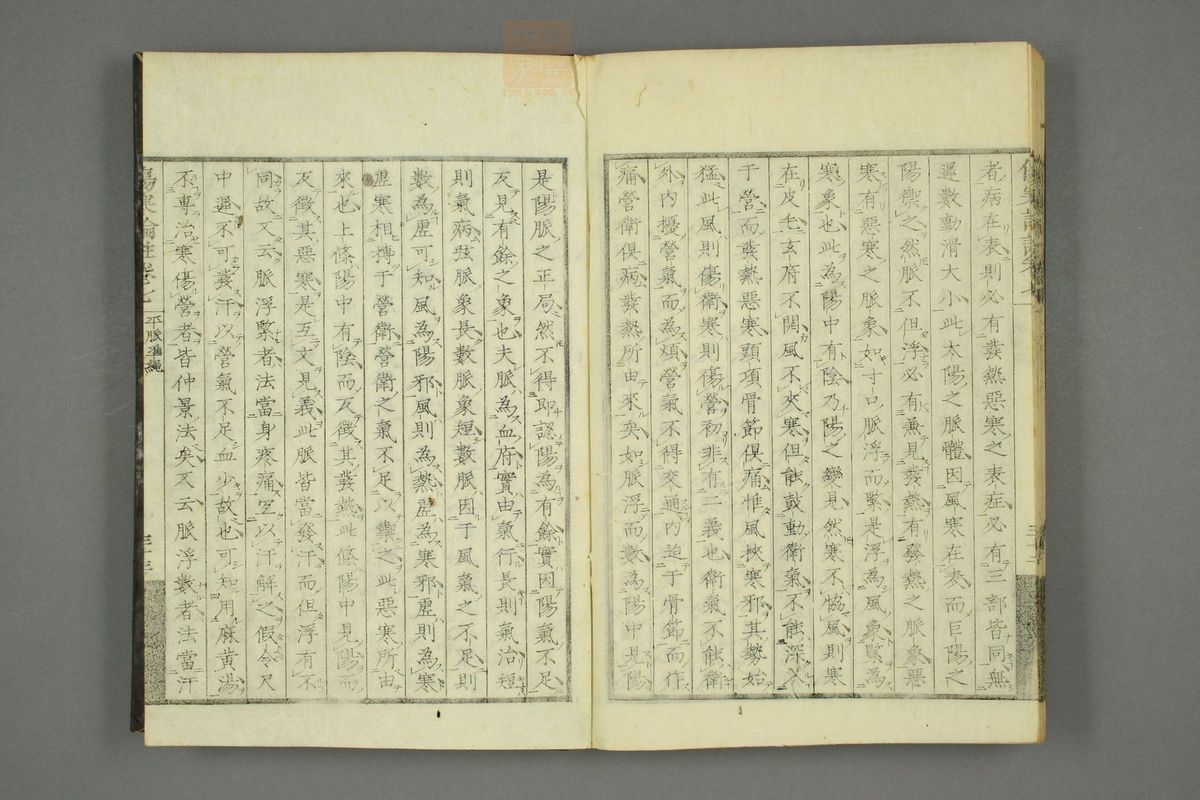 者病在表則必有發熱惡寒之表症必有三部皆同無
遲數動滑大小此太陽之脈體因風寒在表而巨陽之
陽禦之然脈不但浮必有兼見發熱有發熱之脈象惡
寒有惡寒之脈象如寸口脈浮而緊是浮為風象緊為
寒象也此為陽中有陰乃陽之變見然寒不恊風則寒
在皮毛玄府不開風不夾寒但能鼓動衛氣不能深入
于營而發熱惡寒頭項骨節俱痛惟風挾寒邪其勢始
猛此風則傷衛寒則傷營初非有二義也衛氣不能衛
外内擾營氣而為煩營氣不得交通内迫于骨節而作
痛營衛俱病發熱所由來矣如脈浮而數為陽中見陽
是陽脈之正局然不得即認陽為有餘實因陽氣不足
反見有餘之象也夫脈為血府實由氣行長則氣治短
則氣病弦脈象長數脈象短數脈因于風氣之不足則
數為虛可知風為陽邪風則為熱虛為寒邪虛則為寒
虛寒相摶于營衛營衛之氣不足以禦之此惡寒所由
來也上條陽中有陰而反徵其發熱此條陽中見陽而
反徵其惡寒是互文見義此脈皆當發汗而但浮有不
同故又云脈浮緊者法當身疼痛宜以汗解之假令尺
中遲不可發汗以營氣不足血少故也可知用麻黄湯
不專治寒傷營者皆仲景法矣又云脈浮數者法當汗
傷寒論註卷之一 平脈準繩